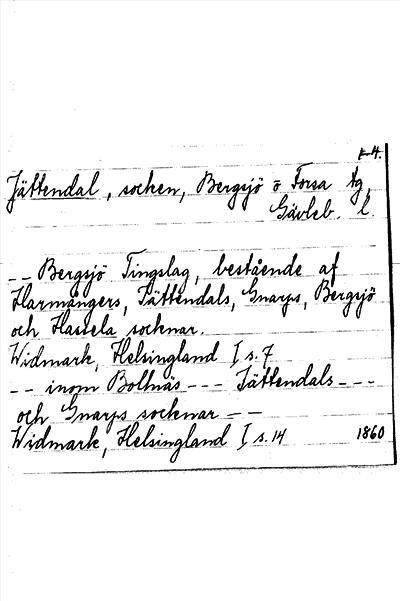 1-4.
Jättendal, socken, Bergsjö o Forsa tg,
Gävleb. l.
-- Bergsjö Tingslag, bestående af
Harmångers, Jättendals, Gnarps, Bergsjö
och Hassela socknar.
Widmark, Helsingland I s. 7
-- inom Bollnäs --- Jättendals ---
och Gnarps socknar --
Widmark, Helsingland I s. 14 1860